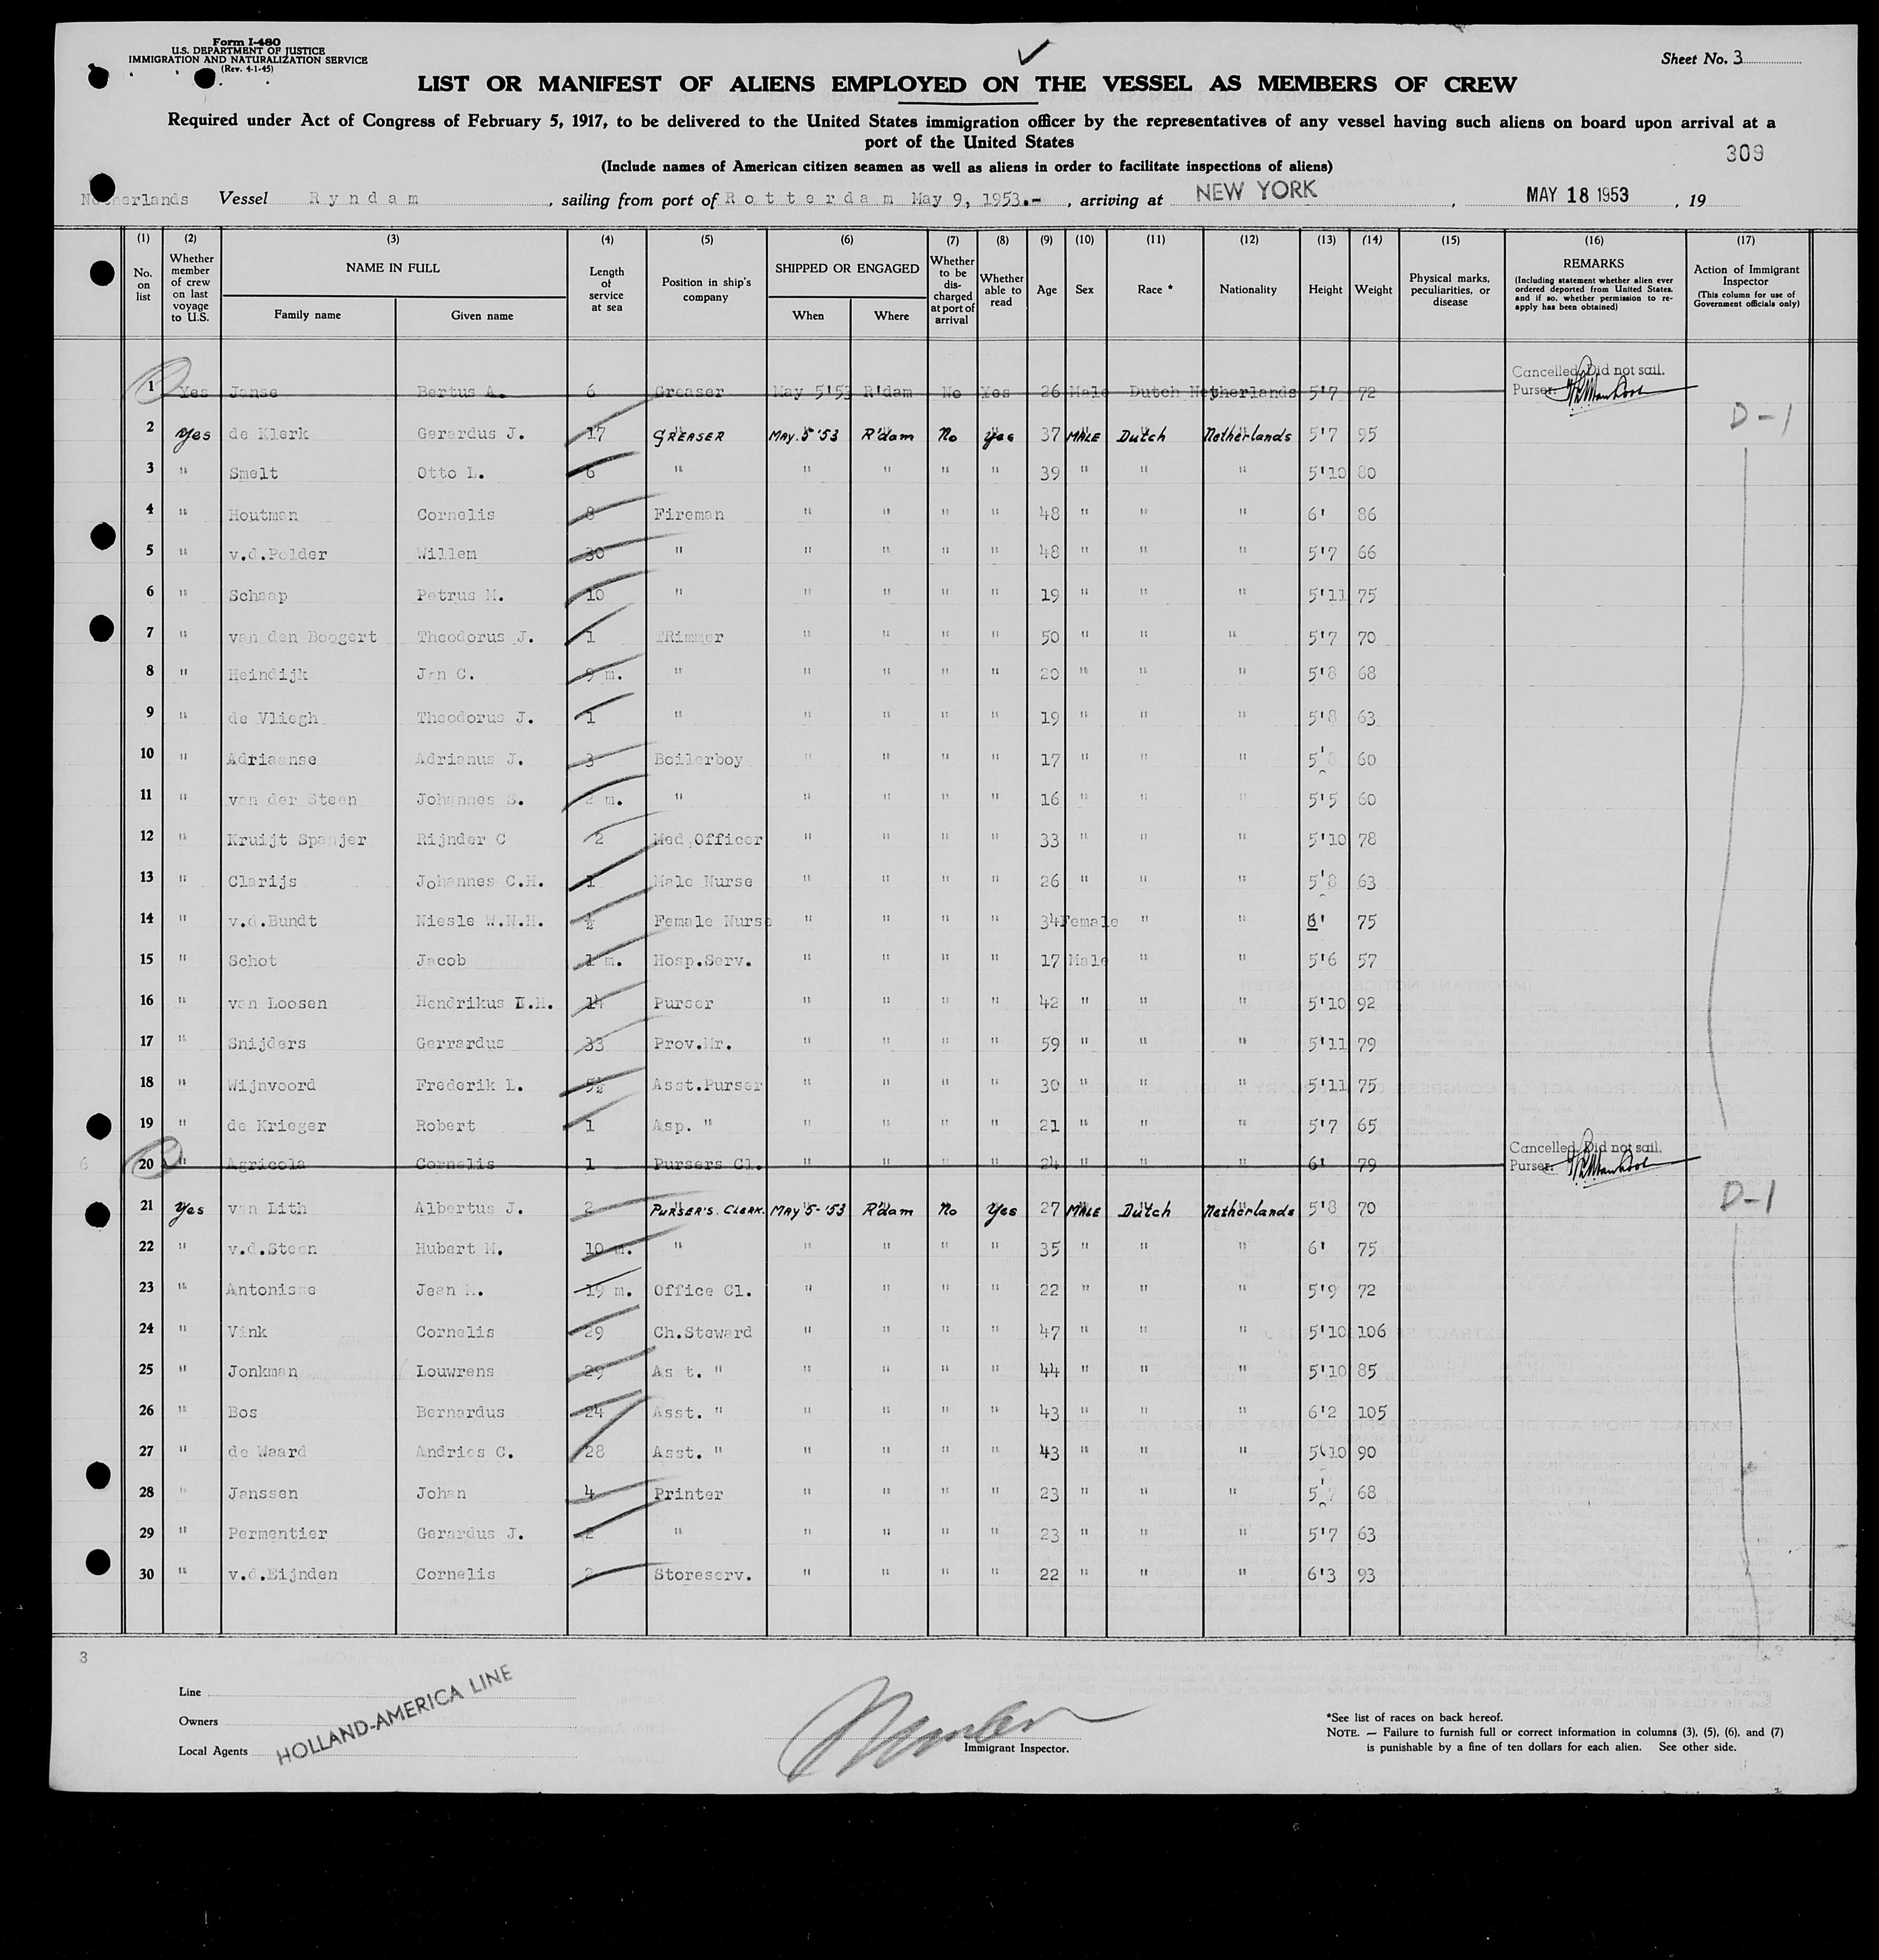 Form I-480
U.S. DEPARTMENT OF JUSTICE
IMMIGRATION AND NATURALIZATION SERVICE
(Rev. 4-1-45)
Sheet No. 3
LIST OR MANIFEST OF ALIENS EMPLOYED ON THE VESSEL AS MEMBERS OF CREW
Required under Act of Congress of February 5, 1917, to be delivered to the United States immigration officer by the representatives of any vessel having such aliens on board upon arrival at a
port of the United States
(Include names of American citizen seamen as well as aliens in order to facilitate inspections of aliens)
309
Netherlands Vessel Ryndam, sailing from port of Rotterdam May 9, 1953.-, arriving at NEW YORK, MAY 18 1953, 19
(1) (2) (3) (4) (5) (6) (7) (8) (9) (10) (11) (12) (13) (14) (15) (16) (17)
No. on list
Whether member of crew on last voyage to U.S.
NAME IN FULL
Family name
Given name
Length of service at sea
Position in ship's company
SHIPPED OR ENGAGED
When
Where
Whether to be discharged at port of arrival
Whether able to read
Age
Sex
Race *
Nationality
Height
Weight
Physical marks, peculiarities, or disease
REMARKS
(Including statement whether alien ever ordered deported from United States, and if so, whether permission to reapply has been obtained)
Action of Immigrant Inspector
(This column for use of Government officials only)
1 Yes Janse Bertus A. 6 Greaser May 5'53 R'dam No Yes 26 Male Dutch Netherlands 5'7 72 Cancelled. Did not sail.
Purser.
D-1
2 Yes de Klerk Gerardus J. 17 GREASER MAY. 5 '53 R'dam No Yes 37 MALE Dutch Netherlands 5'7 95
3 " Smelt Otto L. 6 " " " " " 39 " " " 5'10 80
4 " Houtman Cornelis 8 Fireman " " " " 48 " " " 6' 86
5 " v.d.Polder Willem 30 " " " " " 48 " " " 5'7 66
6 " Schaap Petrus M. 10 " " " " " 19 " " " 5'11 75
7 " van den Boogert Theodorus J. 1 TRimmer " " " " 50 " " " 5'7 70
8 " Heindijk Jan C. 9 m. " " " " " 20 " " " 5'8 68
9 " de Vliegh Theodorus J. 1 " " " " " 19 " " " 5'8 63
10 " Adriaanse Adrianus J. 3 Boilerboy " " " " 17 " " " 5'8 60
11 " van der Steen Johannes S. 2 m. " " " " " 16 " " " 5'5 60
12 " Kruijt Spanjer Rijnder C 2 Med.Officer " " " " 33 " " " 5'10 78
13 " Clarijs Johannes C.H. 1 Male Nurse " " " " 26 " " " 5'8 63
14 " v.d.Bundt Niesle W.N.H. ½ Female Nurse " " " " 34 Female " " 6' 75
15 " Schot Jacob 1 m. Hosp.Serv. " " " " 17 Male " " 5'6 57
16 " van Loosen Hendrikus L.H. 14 Purser " " " " 42 " " " 5'10 92
17 " Snijders Gerrardus 33 Prov.Mr. " " " " 59 " " " 5'11 79
18 " Wijnvoord Frederik L. 5½ Asst.Purser " " " " 30 " " " 5'11 75
19 " de Krieger Robert 1 Asp. " " " " " 21 " " " 5'7 65
6 20 " Agricola Cornelis 1 Pursers Cl. " " " " 24 " " " 6' 79 Cancelled. Did not sail.
Purser.
D-1
21 Yes van Lith Albertus J. 2 PURSER'S. CLERK. MAY 5-'53 R'dam No Yes 27 MALE Dutch Netherlands 5'8 70
22 " v.d.Steen Hubert M. 10 m. " " " " " 35 " " " 6' 75
23 " Antonisse Jean M. 19 m. Office Cl. " " " " 22 " " " 5'9 72
24 " Vink Cornelis 29 Ch.Steward " " " " 47 " " " 5'10 106
25 " Jonkman Louwrens 29 As t. " " " " " 44 " " " 5'10 85
26 " Bos Bernardus 24 Asst. " " " " " 43 " " " 6'2 105
27 " de Waard Andries C. 28 Asst. " " " " " 43 " " " 5'10 90
28 " Janssen Johan 4 Printer " " " " 23 " " " 5'7 68
29 " Permentier Gerardus J. 2 " " " " " 23 " " " 5'7 63
30 " v.d.Eijnden Cornelis 2 Storeserv. " " " " 22 " " " 6'3 93
3
Line
Owners
Local Agents
HOLLAND-AMERICA LINE
Immigrant Inspector.
*See list of races on back hereof.
NOTE. — Failure to furnish full or correct information in columns (3), (5), (6), and (7)
is punishable by a fine of ten dollars for each alien. See other side.